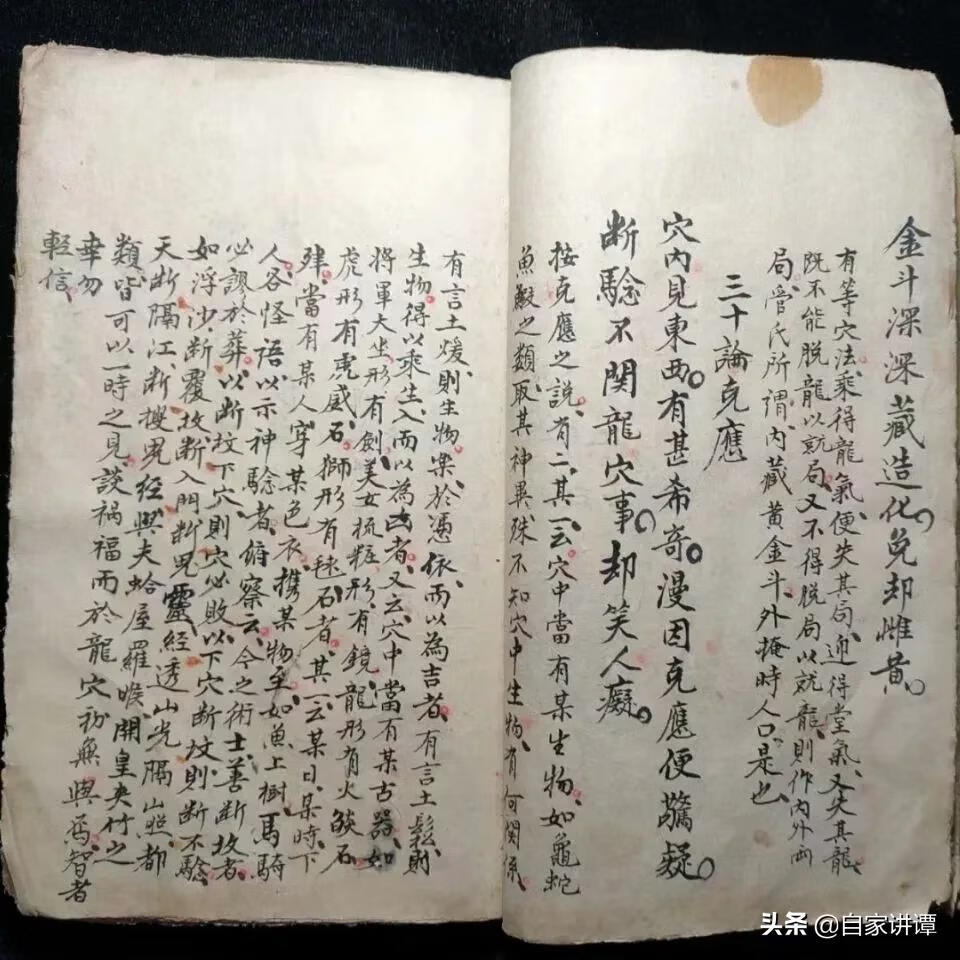 金斗深深藏造化免却雌黄
有等穴法乘得龍氣便失其局迎得堂氣又失其龍
既不能脱龍以就局又不得脱局以就龍則作內外兩
局管氏所謂內藏黄金斗外掩時人口是也
三十論克應
穴內見東西有甚希奇漫因克應便驚疑
断騐不関龍穴事却笑人癡
按克應之說有二其一云穴中當有某生物如龜蛇
魚鰕之類取其神異殊不知穴中生物有何関係
有言土煖則生物樂於憑依而以為吉者有言土鬆則
生物得以乘生入而以為凶者又云穴中當有某古器如
將軍大坐形有劍美女梳粧形有鏡龍形有火燄石
虎形有虎威石獅形有毬石者其一云某日某時下
肂當有某人穿某色衣携某物至如魚上樹馬騎
人各怪語以示神騐者俯察云今之術士善断故者
必謬於葬以断坟下穴則穴必敗以下穴断坟則断不騐
如浮沙断覆故断入門断鬼靈經透山光隔山照都
天断隔江断搜鬼經與夫蛤屋羅㬋開皇夾竹之
類皆可以一時之見談禍福而於龍穴初無與焉智者
幸勿
輕信
头条 @自家讲谭